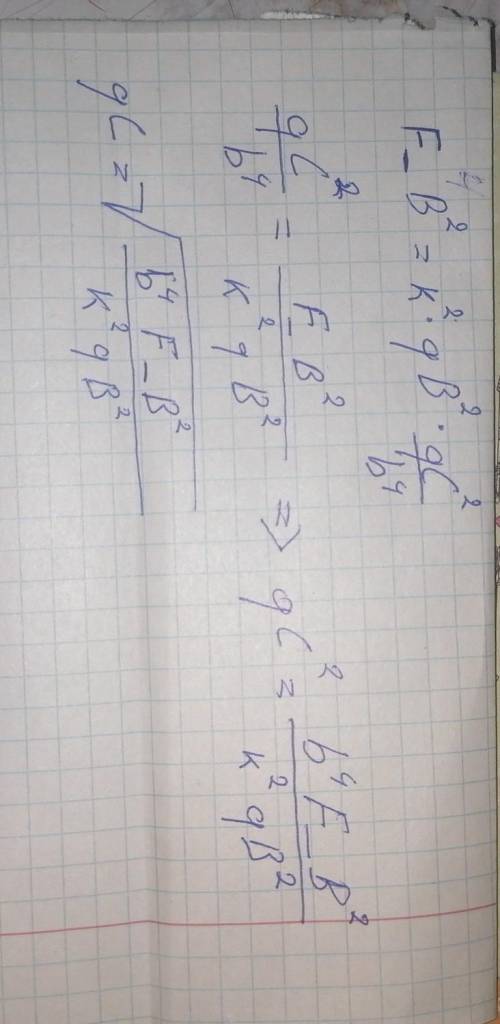 F_B² = к² · qB² · qC²/b⁴
qC²/b⁴ = F_B²/к² qB² => qC² = b⁴ F_B²/к² qB²
qC = √b⁴ F_B²/к² qB²